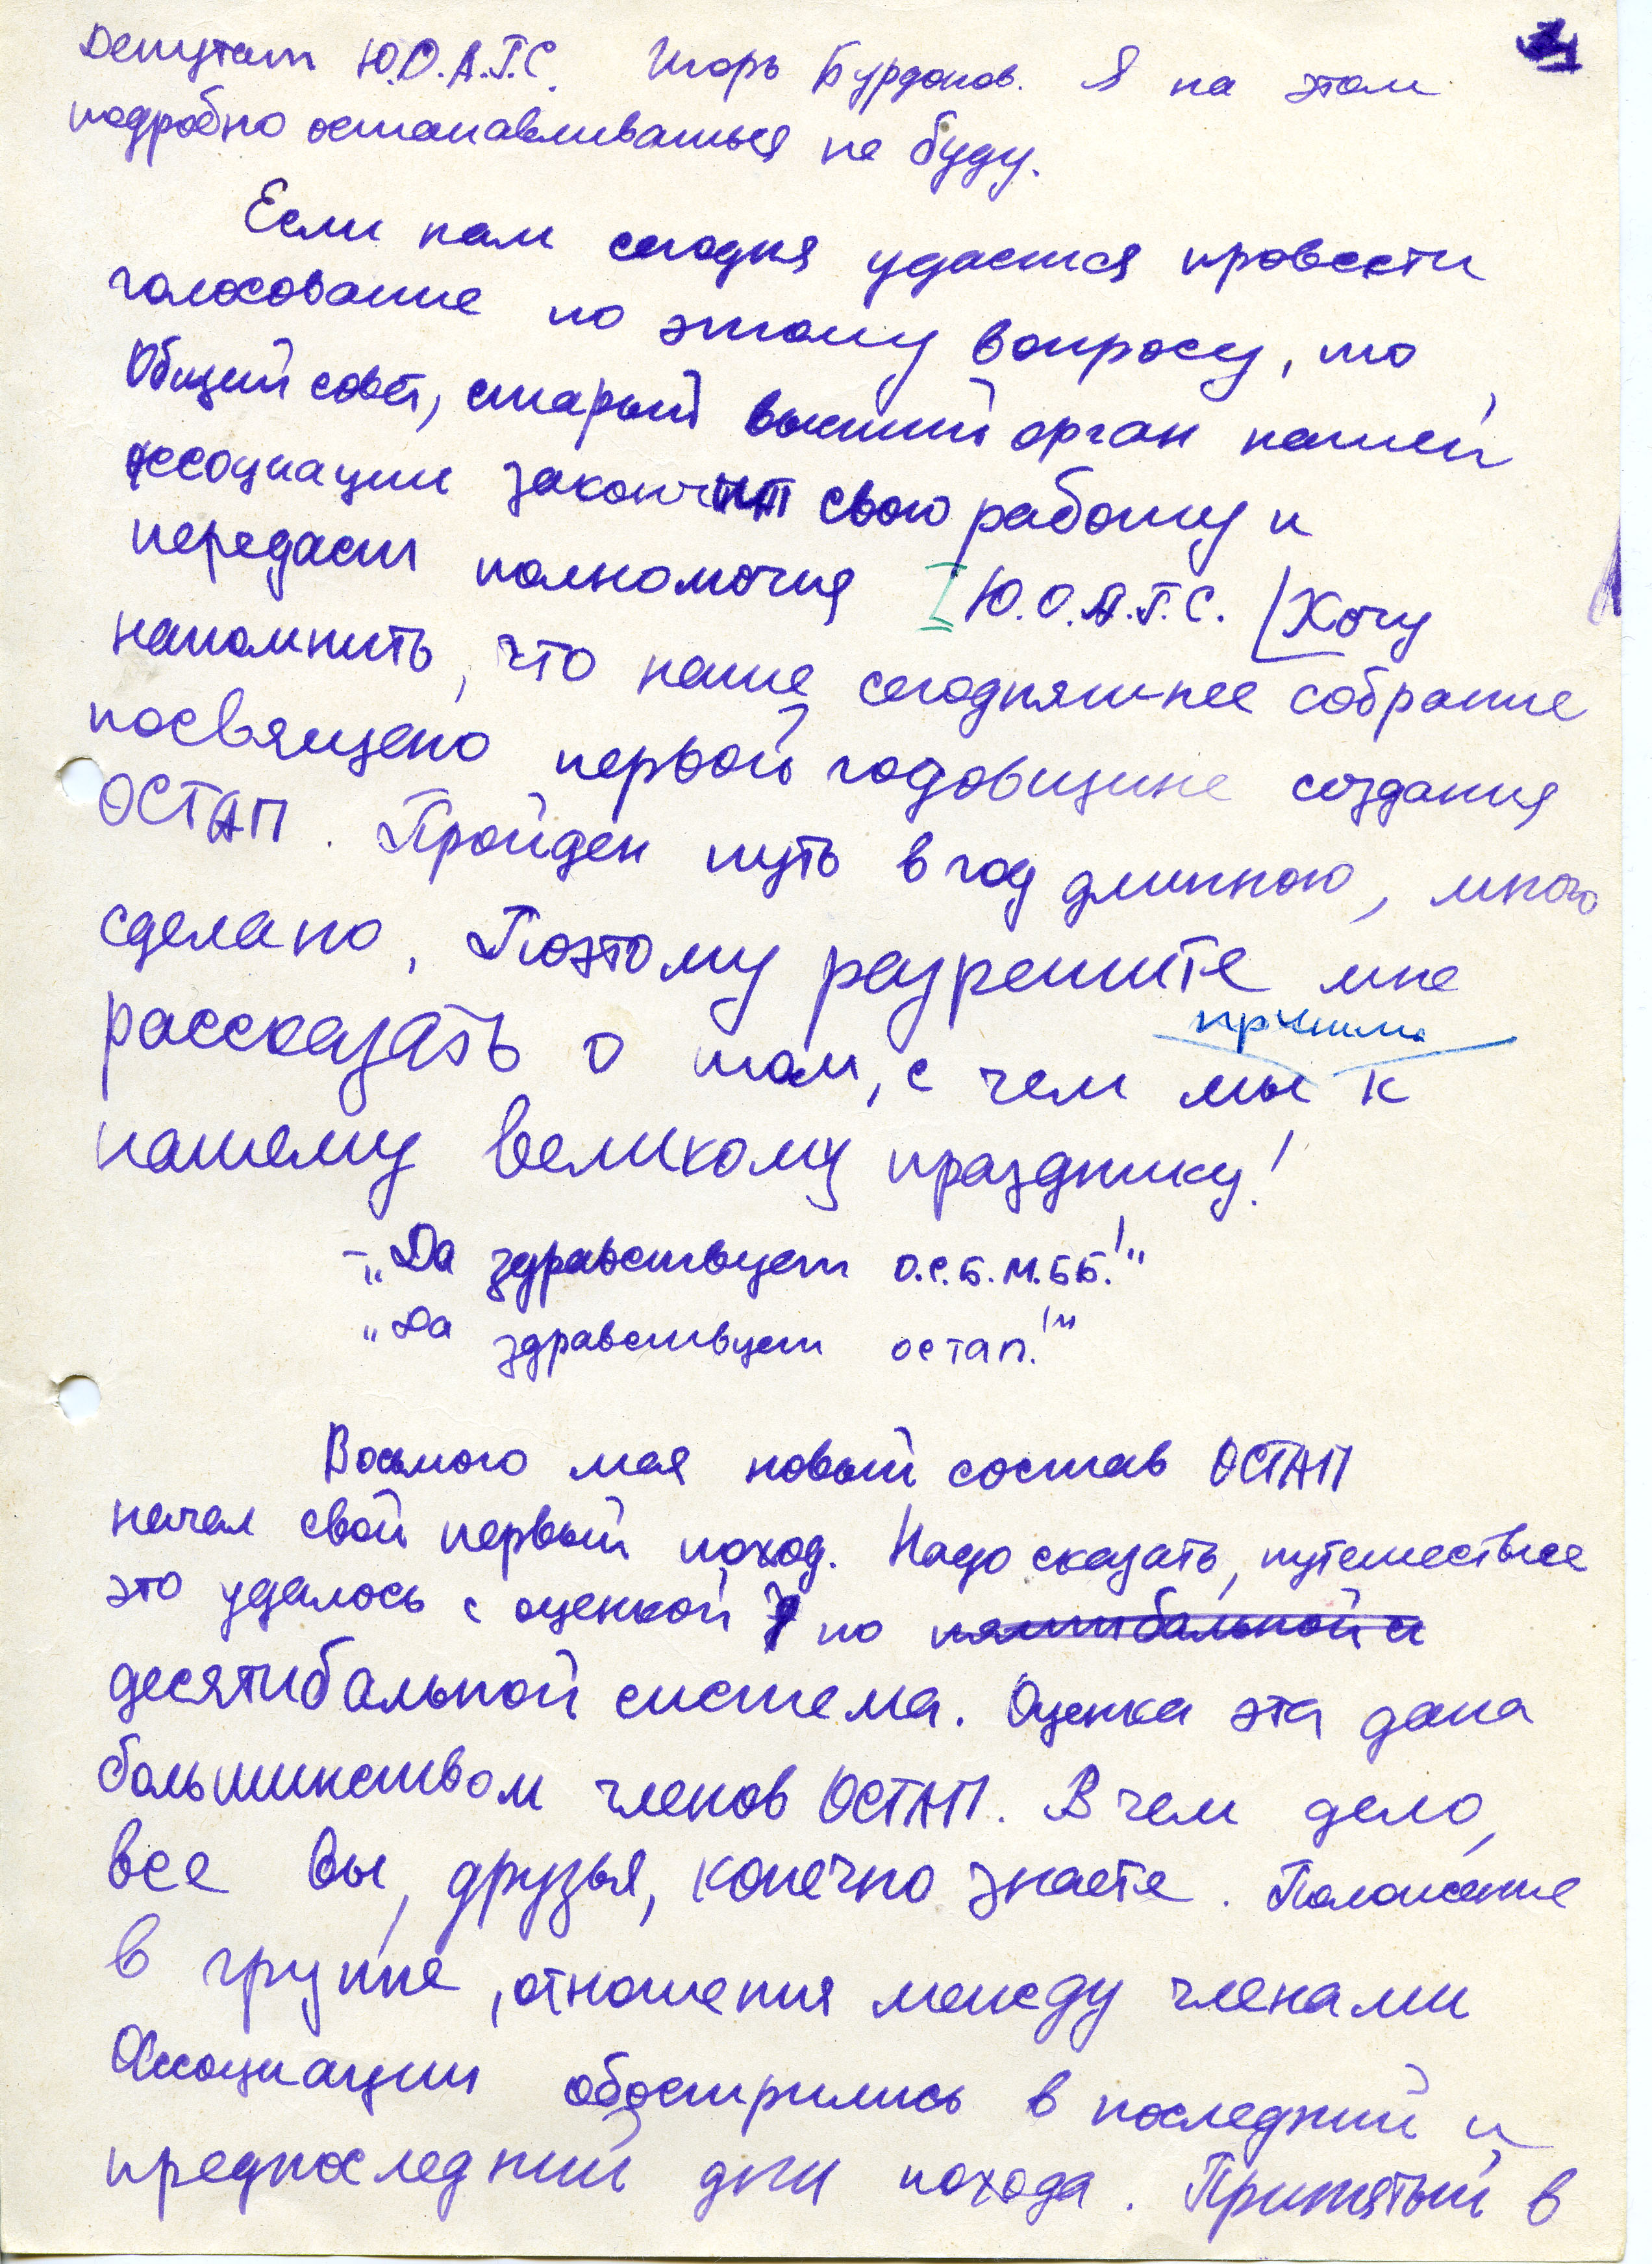 Депутат Ю.О.А.Г.С. Игорь Бурдонов. Я на этом
подробно останавливаться не буду.
Если нам сегодня удастся провести
голосование по этому вопросу, то
Общий совет, старый высший орган нашей
ассоциации закончит свою работу и
передаст полномочия I Ю.О.А.Г.С. Хочу
напомнить, что наше сегодняшнее собрание
посвящено первой годовщине создания
ОСТАП. Пройден путь в год длинною, много
сделано. Поэтому разрешите мне
рассказать о том, с чем мы пришли к
нашему великому празднику!
– „Да здравствует О.С.Б.М.Б.Б.!"
„Да здравствует ОСТАП!"
Восьмого мая новый состав ОСТАП
начал свой первый поход. Надо сказать, путешествие
это удалось с оценкой 7 по пятибальной и
десятибальной система. Оценка эта дана
большинством членов ОСТАП. В чем дело,
все вы, друзья, конечно знаете. Положение
в группе, отношения между членами
Ассоциации обострились в последний и
предпоследний дни похода. Принятый в